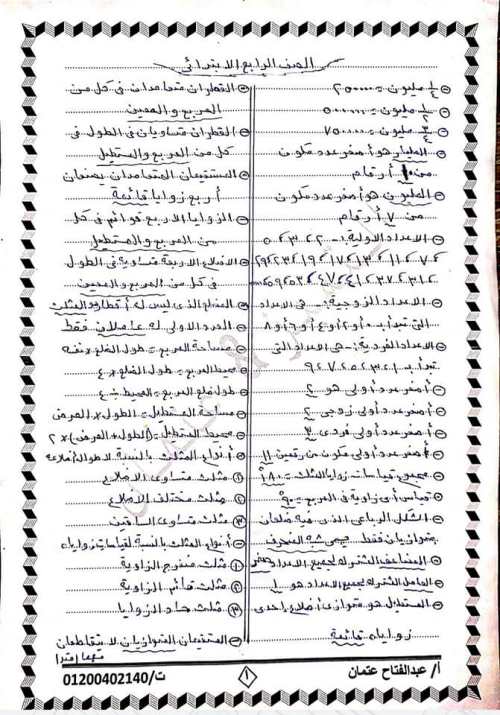 الصف الرابع الابتدائي
١/٤ مليون = ٢٥٠٠٠٠
١/٢ مليون = ٥٠٠٠٠٠
٣/٤ مليون = ٧٥٠٠٠٠
المليار هو أصغر عدد مكون
من ١٠ أرقام
المليون هو أصغر عدد مكون
من ٧ أرقام
الاعداد الاولية :- ٢ ٣ ٥
٧ ١١ ١٣ ١٧ ١٩ ٢٣ ٢٩
٣١ ٣٧ ٤١ ٤٣ ٤٧ ٥٣ ٥٩
الاعداد الزوجية :- هي الاعداد
التي تبدأ بـ ٠ أو ٢ أو ٤ أو ٦ أو ٨
الاعداد الفردية :- هي الاعداد التي
تبدأ بـ ١ ٣ ٥ ٧ ٩
أصغر عدد أولي هو ٢
أصغر عدد أولي زوجي ٢
أصغر عدد أولي فردي ٣
أصغر عدد أولي مكون من رقمين ١١
مجموع قياسات زوايا المثلث = ١٨٠°
قياس أي زاوية في المربع = ٩٠°
الشكل الرباعي الذي فيه ضلعان
متوازيان فقط هو شبه المنحرف
المضاعف المشترك لجميع الاعداد صفر
العامل المشترك لجميع الاعداد هو ١
المستطيل هو متوازي أضلاع إحدى
زواياه قائمة
القطران متعامدان في كل من
المربع والمعين
القطران متساويان في الطول في
كل من المربع والمستطيل
المستقيمان المتعامدان يصنعان
أربع زوايا قائمة
الزوايا الاربع قوائم في كل
من المربع والمستطيل
الاضلاع الاربعة متساوية في الطول
في كل من المربع والمعين
المضلع الذي ليس له أقطار هو المثلث
العدد الاولي له عاملان فقط
مساحة المربع = طول الضلع × نفسه
محيط المربع = طول الضلع × ٤
طول ضلع المربع = المحيط ÷ ٤
مساحة المستطيل = الطول × العرض
محيط المستطيل = (الطول + العرض) × ٢
أنواع المثلث بالنسبة لاطوال أضلاعه
١ مثلث متساوى الاضلاع
٢ مثلث مختلف الاضلاع
٣ مثلث متساوى الساقين
أنواع المثلث بالنسبة لقياسات زواياه
١ مثلث منفرج الزاوية
٢ مثلث قائم الزاوية
٣ مثلث حاد الزوايا
المستقيمان المتوازيان لا يتقاطعان
مهما امتدا
أ/ عبدالفتاح عتمان
١
ت/01200402140